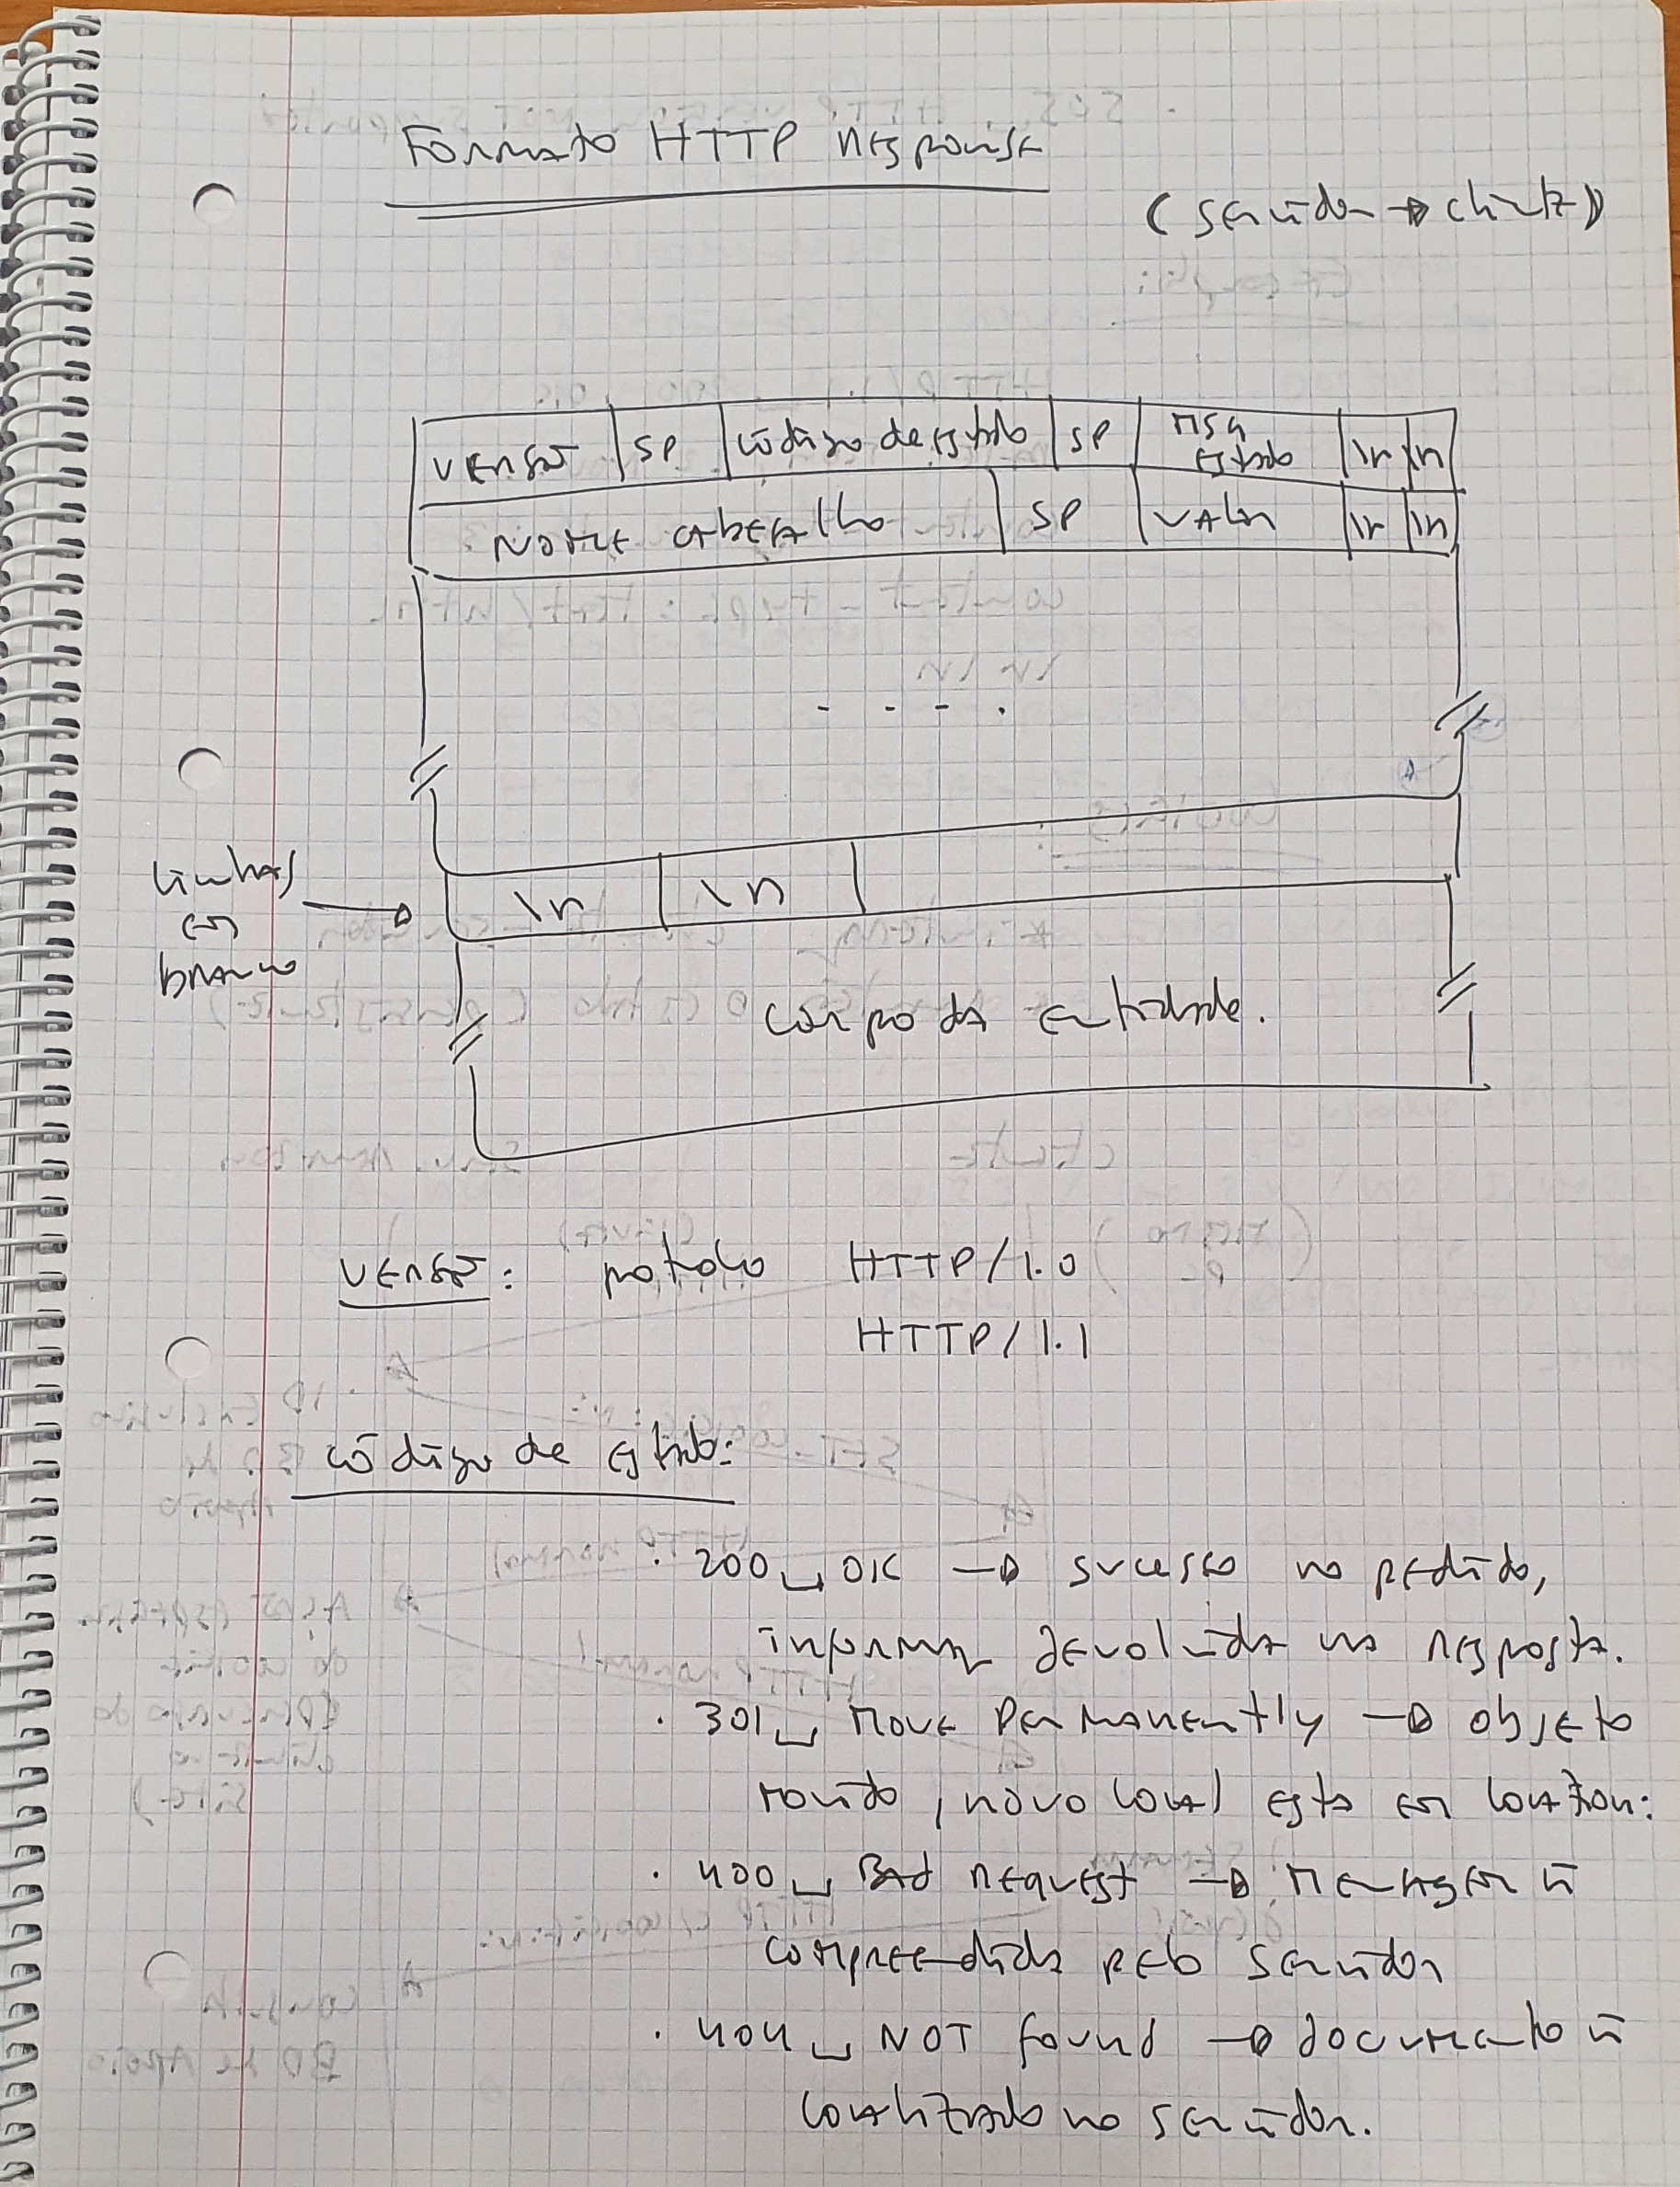 Formato HTTP response
(servidor → cliente)
versão SP código de estado SP msg estado \r \n
nome cabeçalho SP valor \r \n
. . . .
linhas
em
branco
\r \n
corpo da entidade.
versão: protocolo HTTP/1.0
HTTP/1.1
código de estado:
· 200␣OK → sucesso no pedido,
informaç devolvida na resposta.
· 301␣Move Permanently → objeto
movido, novo local esta em location:
· 400␣Bad request → mensagem ñ
compreendida pelo servidor
· 404␣NOT found → documento ñ
localizado no servidor.